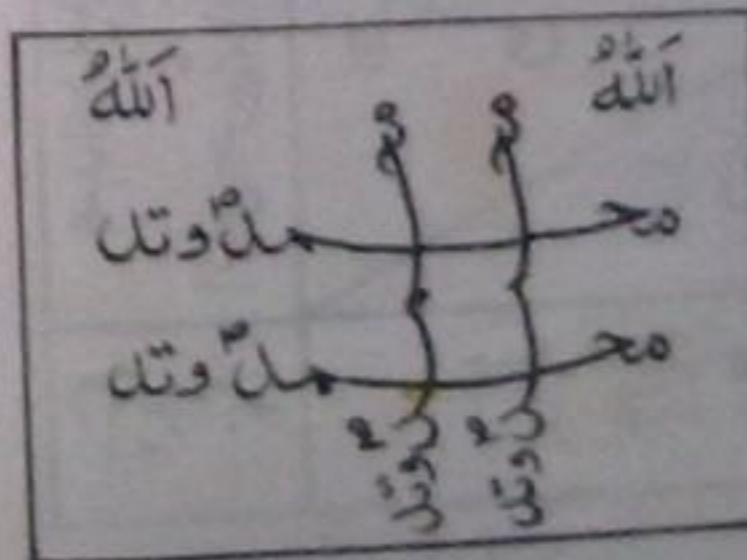 اَللّٰهُ اَللّٰهُ
محمدّ وتد
محمدّ وتد
محمدّ وتد
محمدّ وتد